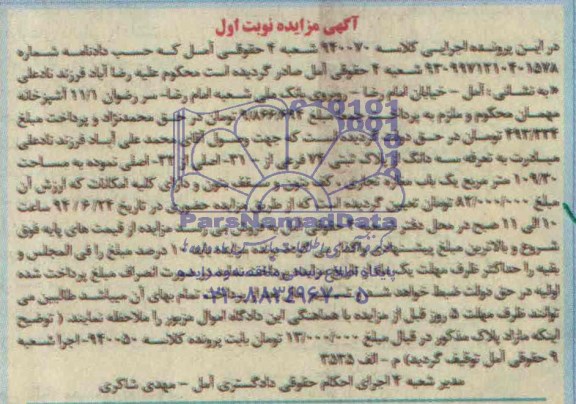 آگهی مزایده نوبت اول
در این پرونده اجرایی کلاسه ۹۴۰۰۷۰ شعبه ۴ حقوقی آمل که حسب دادنامه شماره
۹۳۰۹۹۷۱۲۱۰۴۰۱۵۷۸ شعبه ۴ حقوقی آمل صادر گردیده است محکوم علیه رضا آباد فرزند نادعلی
به نشانی: آمل - خیابان امام رضا - روبروی بانک ملی شعبه امام رضا، سر رضوان ۱۱/۱ آشپزخانه
مهسان محکوم و ملزم به پرداخت مبلغ تومان در حق محمدنژاد و پرداخت مبلغ
۴۹۲/۳۳۴ تومان در حق دولت گردیده است که جهت وصول آقای محمد علی آباد فرزند نادعلی
مبادرت به تعرفه سه دانگ از پلاک ثبتی ۷۴ فرعی از ۳۱- اصلی از ۳۲- اصلی نموده به مساحت
۱۰۹/۳۰ متر مربع یک باب مغازه تجاری کف بتون و سقف بتون و دارای کلیه امکانات که ارزش آن
مبلغ ۸۲/۰۰۰/۰۰۰ تومان تعیین گردیده است که از طریق مزایده حضوری در تاریخ ۹۴/۶/۲۴ ساعت
ParsNamadData
۱۰ الی ۱۱ صبح در محل دفتر شعبه ۴ حقوقی آمل به فروش می رسد مزایده از قیمت های پایه فوق
شروع و بالاترین مبلغ پیشنهادی ۱۰ درصد مبلغ را فی المجلس و
بقیه را حداکثر ظرف مهلت یک در صورت انصراف مبلغ پرداخت شده
اولیه در حق دولت ضبط خواهد شد تمام بهای آن میباشد طالبین می
۰۲۱-۸۸۳۴۹۶۷۰-۵
توانند ظرف مهلت ۵ روز قبل از مزایده با هماهنگی این دادگاه اموال مزبور را ملاحظه نمایند. (توضیح
اینکه مازاد پلاک مذکور در قبال مبلغ ۱۳/۰۰۰/۰۰۰ تومان بابت پرونده کلاسه ۹۴۰۰۵۰- اجرا شعبه
۹ حقوقی آمل توقیف گردید) م - الف ۳۵۳۵
مدیر شعبه ۴ اجرای احکام حقوقی دادگستری آمل - مهدی شاکری